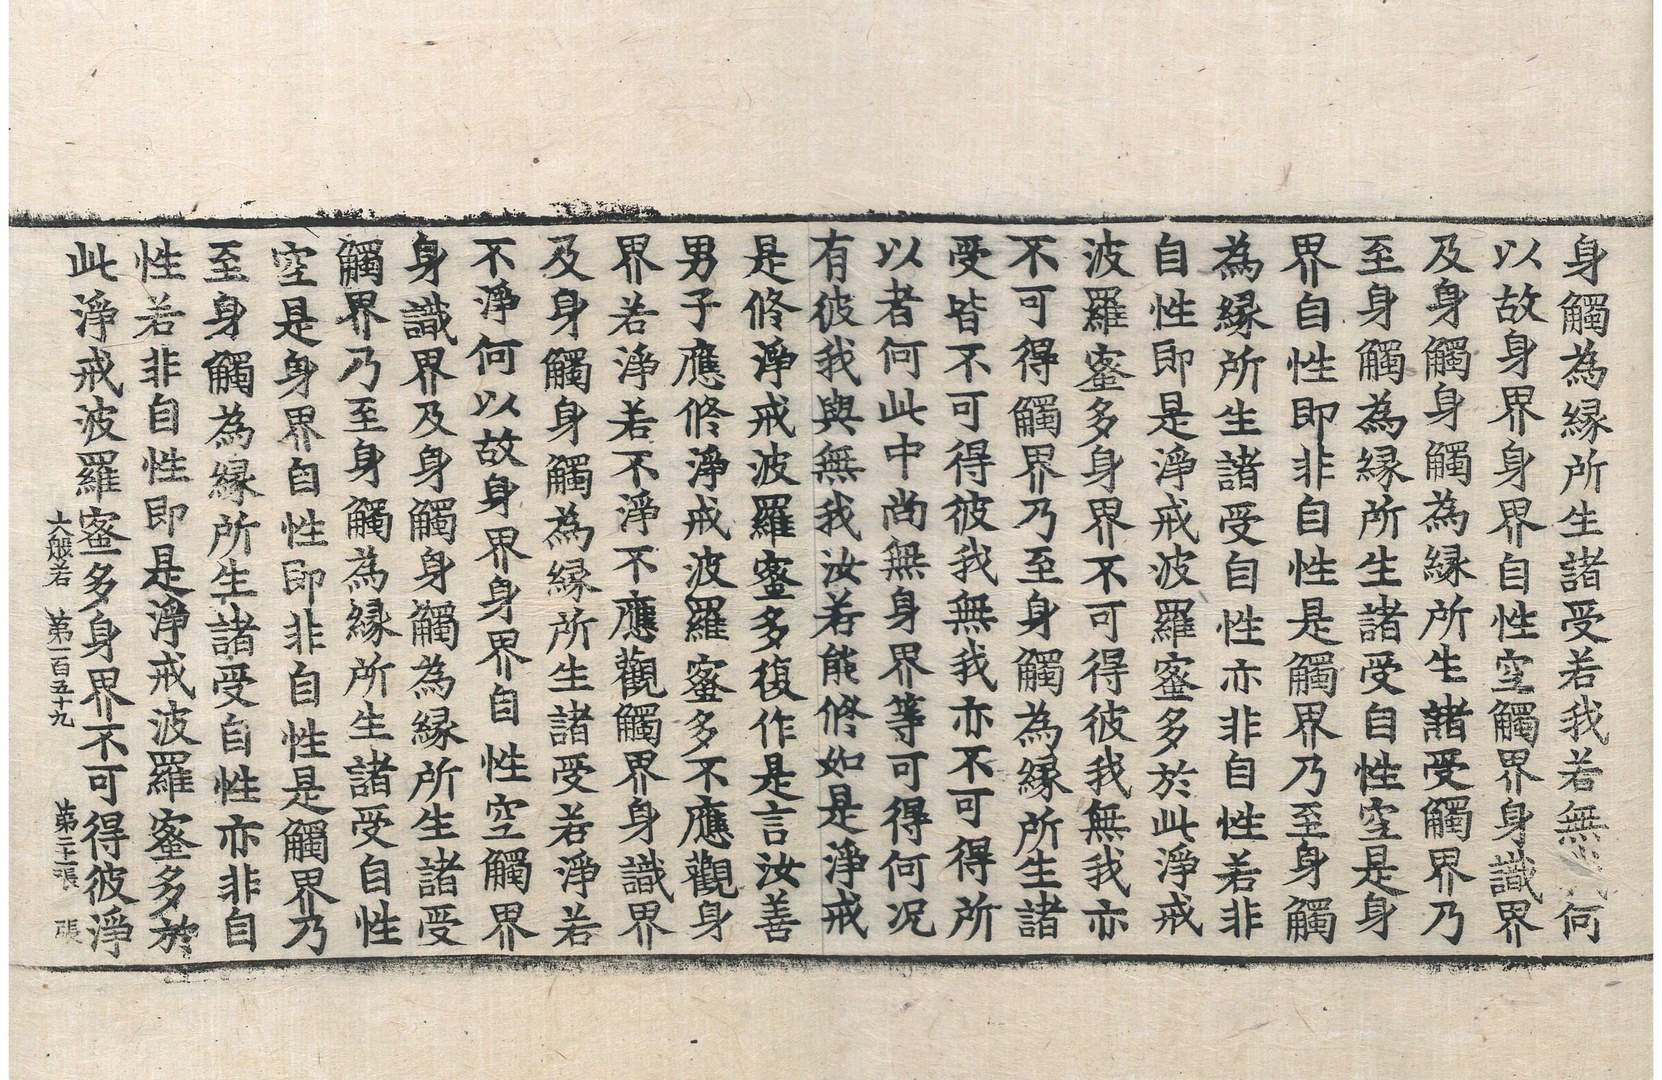 身觸為緣所生諸受若我若無我何
以故身界身界自性空觸界身識界
及身觸身觸為緣所生諸受觸界乃
至身觸為緣所生諸受自性空是身
界自性即非自性是觸界乃至身觸
為緣所生諸受自性亦非自性若非
自性即是淨戒波羅蜜多於此淨戒
波羅蜜多身界不可得彼我無我亦
不可得觸界乃至身觸為緣所生諸
受皆不可得彼我無我亦不可得所
以者何此中尚無身界等可得何况
有彼我與無我汝若能修如是淨戒
是修淨戒波羅蜜多復作是言汝善
男子應修淨戒波羅蜜多不應觀身
界若淨若不淨不應觀觸界身識界
及身觸身觸為緣所生諸受若淨若
不淨何以故身界身界自性空觸界
身識界及身觸身觸為緣所生諸受
觸界乃至身觸為緣所生諸受自性
空是身界自性即非自性是觸界乃
至身觸為緣所生諸受自性亦非自
性若非自性即是淨戒波羅蜜多於
此淨戒波羅蜜多身界不可得彼淨
大般若 第一百五十九 第二十二張 張